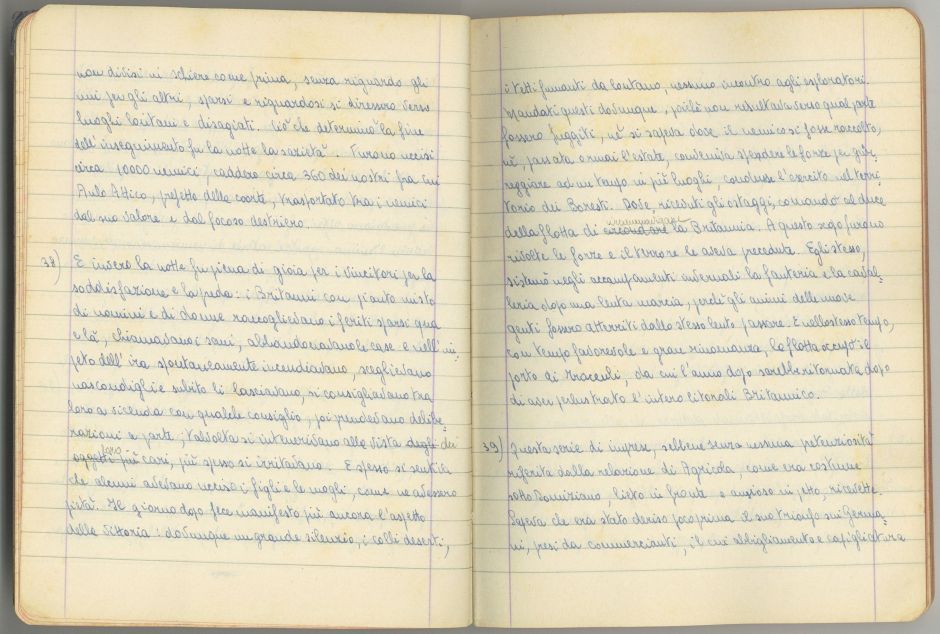 non divisi in schiere come prima, senza riguardo gli
uni per gli altri, sparsi e riguardosi si diressero verso
luoghi lontani e disagiati. Ciò che determinò la fine
dell'inseguimento fu la notte la sazietà. Furono uccisi
circa 10000 nemici, caddero circa 360 dei nostri fra cui
Aulo Attico, prefetto della coorte, trasportato tra i nemici
dal suo valore e dal focoso destriero.
38) E invero la notte fu piena di gioia per i vincitori per la
soddisfazione e la preda: i Britanni con pianto misto
di uomini e di donne raccoglievano i feriti sparsi qua
e là, chiamavano i sani, abbandonavano le case e nell'im-
peto dell'ira spontaneamente incendiavano, sceglievano
nascondigli e subito li lasciavano, si consigliavano tra
loro a vicenda con qualche consiglio, poi prendevano delibe-
razioni a parte; talvolta si intenerivano alla vista degli dei
oggetti loro più cari, più spesso si irritavano. E spesso si sentiva
che alcuni avevano ucciso i figli e le mogli, come ne avessero
pietà. Il giorno dopo fece manifesto più ancora l'aspetto
della vittoria: dovunque un grande silenzio, i colli deserti,
i tetti fumanti da lontano, nessuno incontro agli esploratori.
Mandati questi dovunque, poiché non risultava verso qual parte
fossero fuggiti, né si sapeva dove il nemico si fosse raccolto,
né, passata ormai l'estate, conveniva spendere le forze per guer-
reggiare ad un tempo in più luoghi, condusse l'esercito nel terri-
torio dei Boresti. Dove, ricevuti gli ostaggi, comandò al duce
della flotta di circondare la Britannia. A questo scopo furono
rivolte le forze e il terrore le aveva precedute. Egli stesso,
sistemò negli accampamenti invernali la fanteria e la caval-
leria dopo una lenta marcia, perché gli animi delle nuove
genti fossero atterriti dallo stesso lento passare. E nello stesso tempo,
con tempo favorevole e gran rinomanza, la flotta occupò il
porto di Traccoli, da cui l'anno dopo sarebbe ritornata, dopo
di aver perlustrato l'intero litorale Britannico.
39) Questa serie di imprese, sebbene senza nessuna pretenziosità
riferita dalla relazione di Agricola, come era costume
sotto Domiziano, lieto in fronte e ansioso in petto, ricevette.
Sapeva che era stato deriso poco prima il suo trionfo sui Germa-
ni, presi da commercianti, il cui abbigliamento e capigliatura